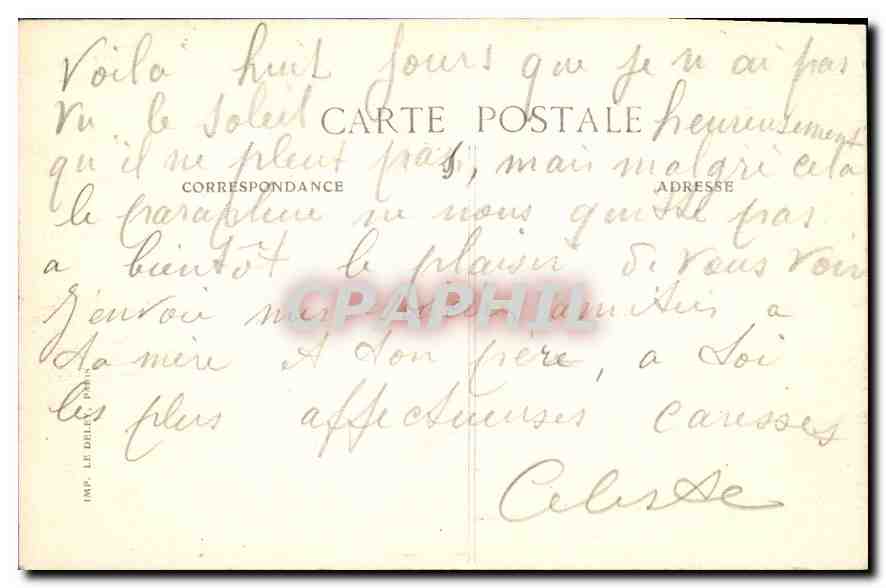 Voilà huit jours que je n'ai pas
vu le soleil heureusement
CARTE POSTALE
qu'il ne pleut pas, mais malgré cela
CORRESPONDANCE ADRESSE
le parapluie ne nous quitte pas
a bientôt le plaisir de vous voir
J'envoie mes amitiés a
CPAPHIL
ta mère et ton père, a toi
les plus affectueuses caresses
Celeste
IMP. LE DELEY, PARIS